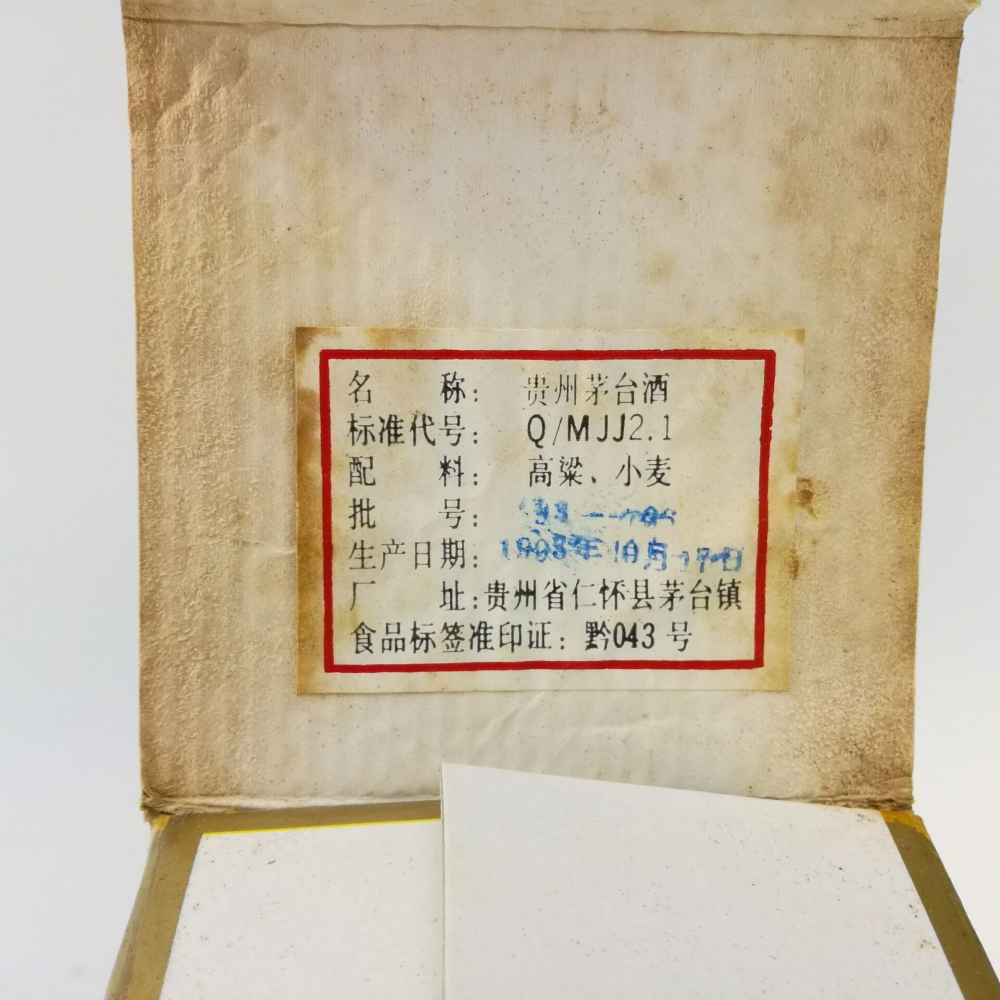 名 称: 贵州茅台酒
标准代号: Q/MJJ2.1
配 料: 高粱、小麦
批 号:
生产日期: 1993年10月17日
厂 址:贵州省仁怀县茅台镇
食品标签准印证: 黔043 号